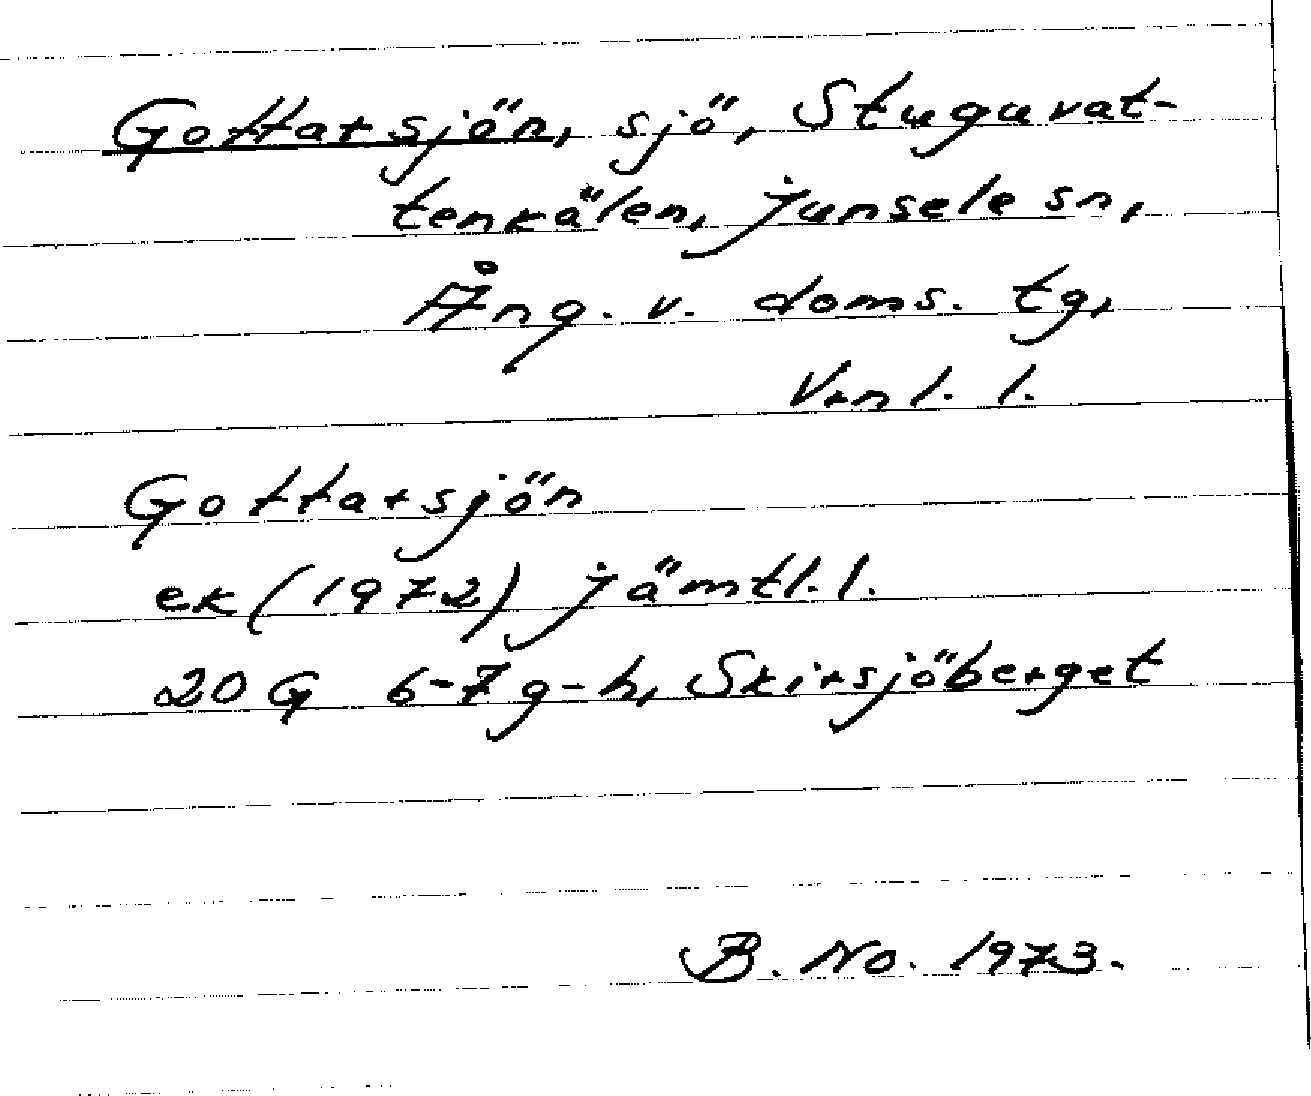 Gottarsjön, sjö, Stuguvat-
tenkälen, Junsele sn,
Ång. v. doms. tg,
Vrnl. l.
Gottarsjön
ek (1972) Jämtl. l.
20 G 6-7 g-h, Skirsjöberget
B. No. 1973.